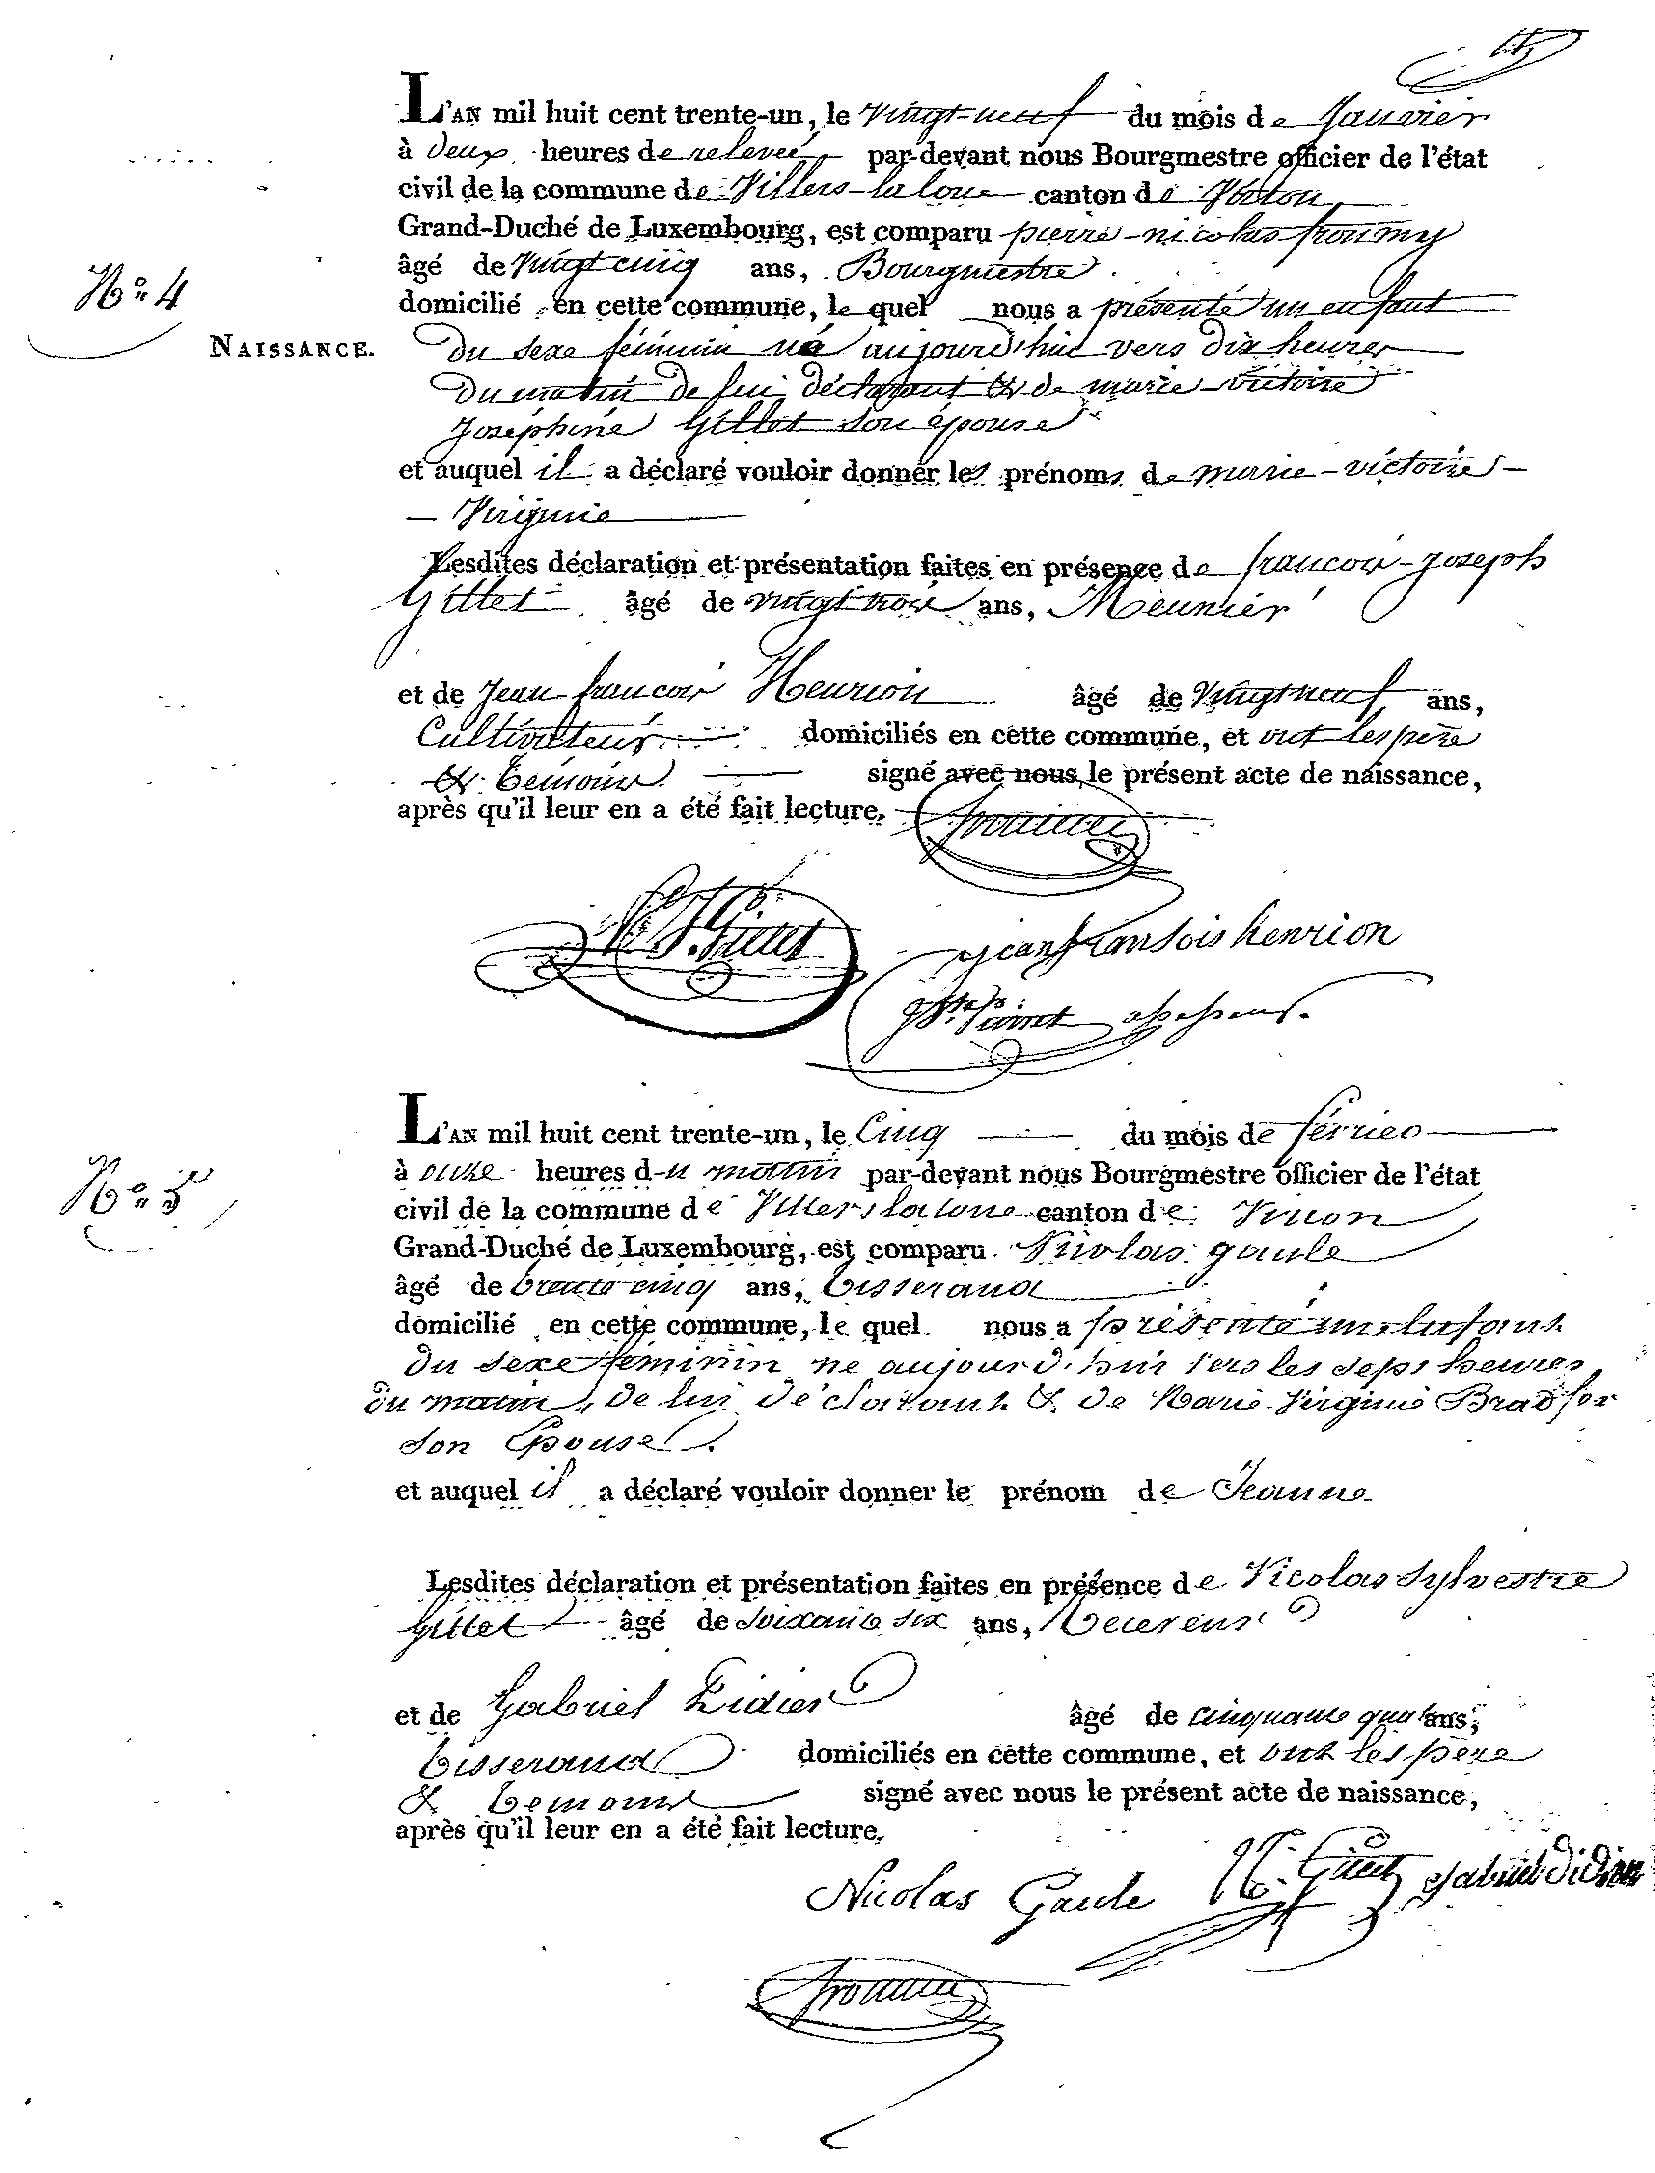 L'AN mil huit cent trente-un, le vingt-neuf du mois de Janvier
à deux heures de relevée, par-devant nous Bourgmestre officier de l'état
civil de la commune de Villers-la loue canton de Virton,
Grand-Duché de Luxembourg, est comparu pierre-nicolas froumy
N° 4
âgé de vingt cinq ans, Bourgmestre
domicilié en cette commune, le quel nous a présenté un enfant
NAISSANCE.
du sexe féminin né aujourd'hui vers dix heures
du matin de lui déclarant & de marie-victoire
Joséphine Gillet son épouse
et auquel il a déclaré vouloir donner les prénoms de marie-victoire-
- Virginie
Lesdites déclaration et présentation faites en présence de francois-joseph
Gillet âgé de vingt trois ans, Meunier
et de Jean francois Henrion âgé de vingt neuf ans,
Cultivateur domiciliés en cette commune, et ont les père
& témoins signé avec nous le présent acte de naissance,
après qu'il leur en a été fait lecture.
J. Gillet
jean fransois henrion
assesseur.
L'AN mil huit cent trente-un, le Cinq du mois de février
N° 5
à onze heures du matin par-devant nous Bourgmestre officier de l'état
civil de la commune de Villers laloue canton de Virton
Grand-Duché de Luxembourg, est comparu Nicolas gaule
âgé de trente cinq ans, tisserand
domicilié en cette commune, le quel nous a présenté un enfant
du sexe féminin né aujourd'hui vers les sept heures
du matin, de lui déclarant & de Marie Virginie Bradfer
son Epouse.
et auquel il a déclaré vouloir donner le prénom de Jeanne
Lesdites déclaration et présentation faites en présence de Nicolas Sylvestre
Gillet âgé de soixante six ans, Receveur
et de Gabriel Didier âgé de cinquante quatre ans,
tisserand domiciliés en cette commune, et ont les père
& temoins signé avec nous le présent acte de naissance,
après qu'il leur en a été fait lecture.
Nicolas Gaule N. Gillet gabriel didier